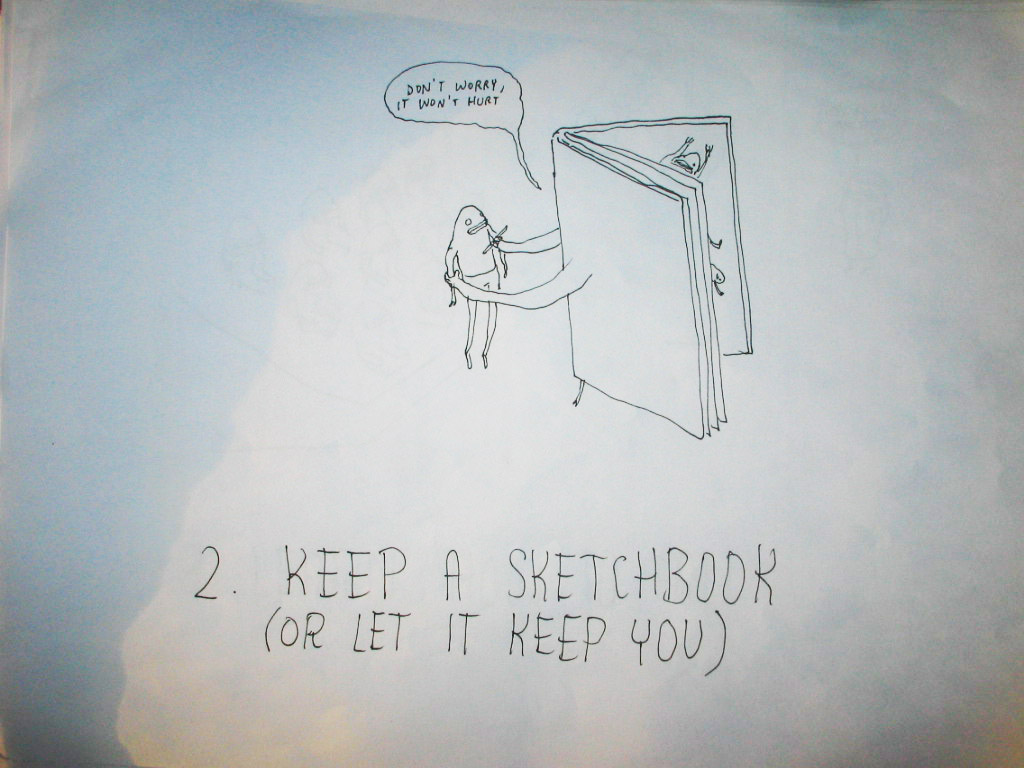 DON'T WORRY,
IT WON'T HURT
2. KEEP A SKETCHBOOK
(OR LET IT KEEP YOU)